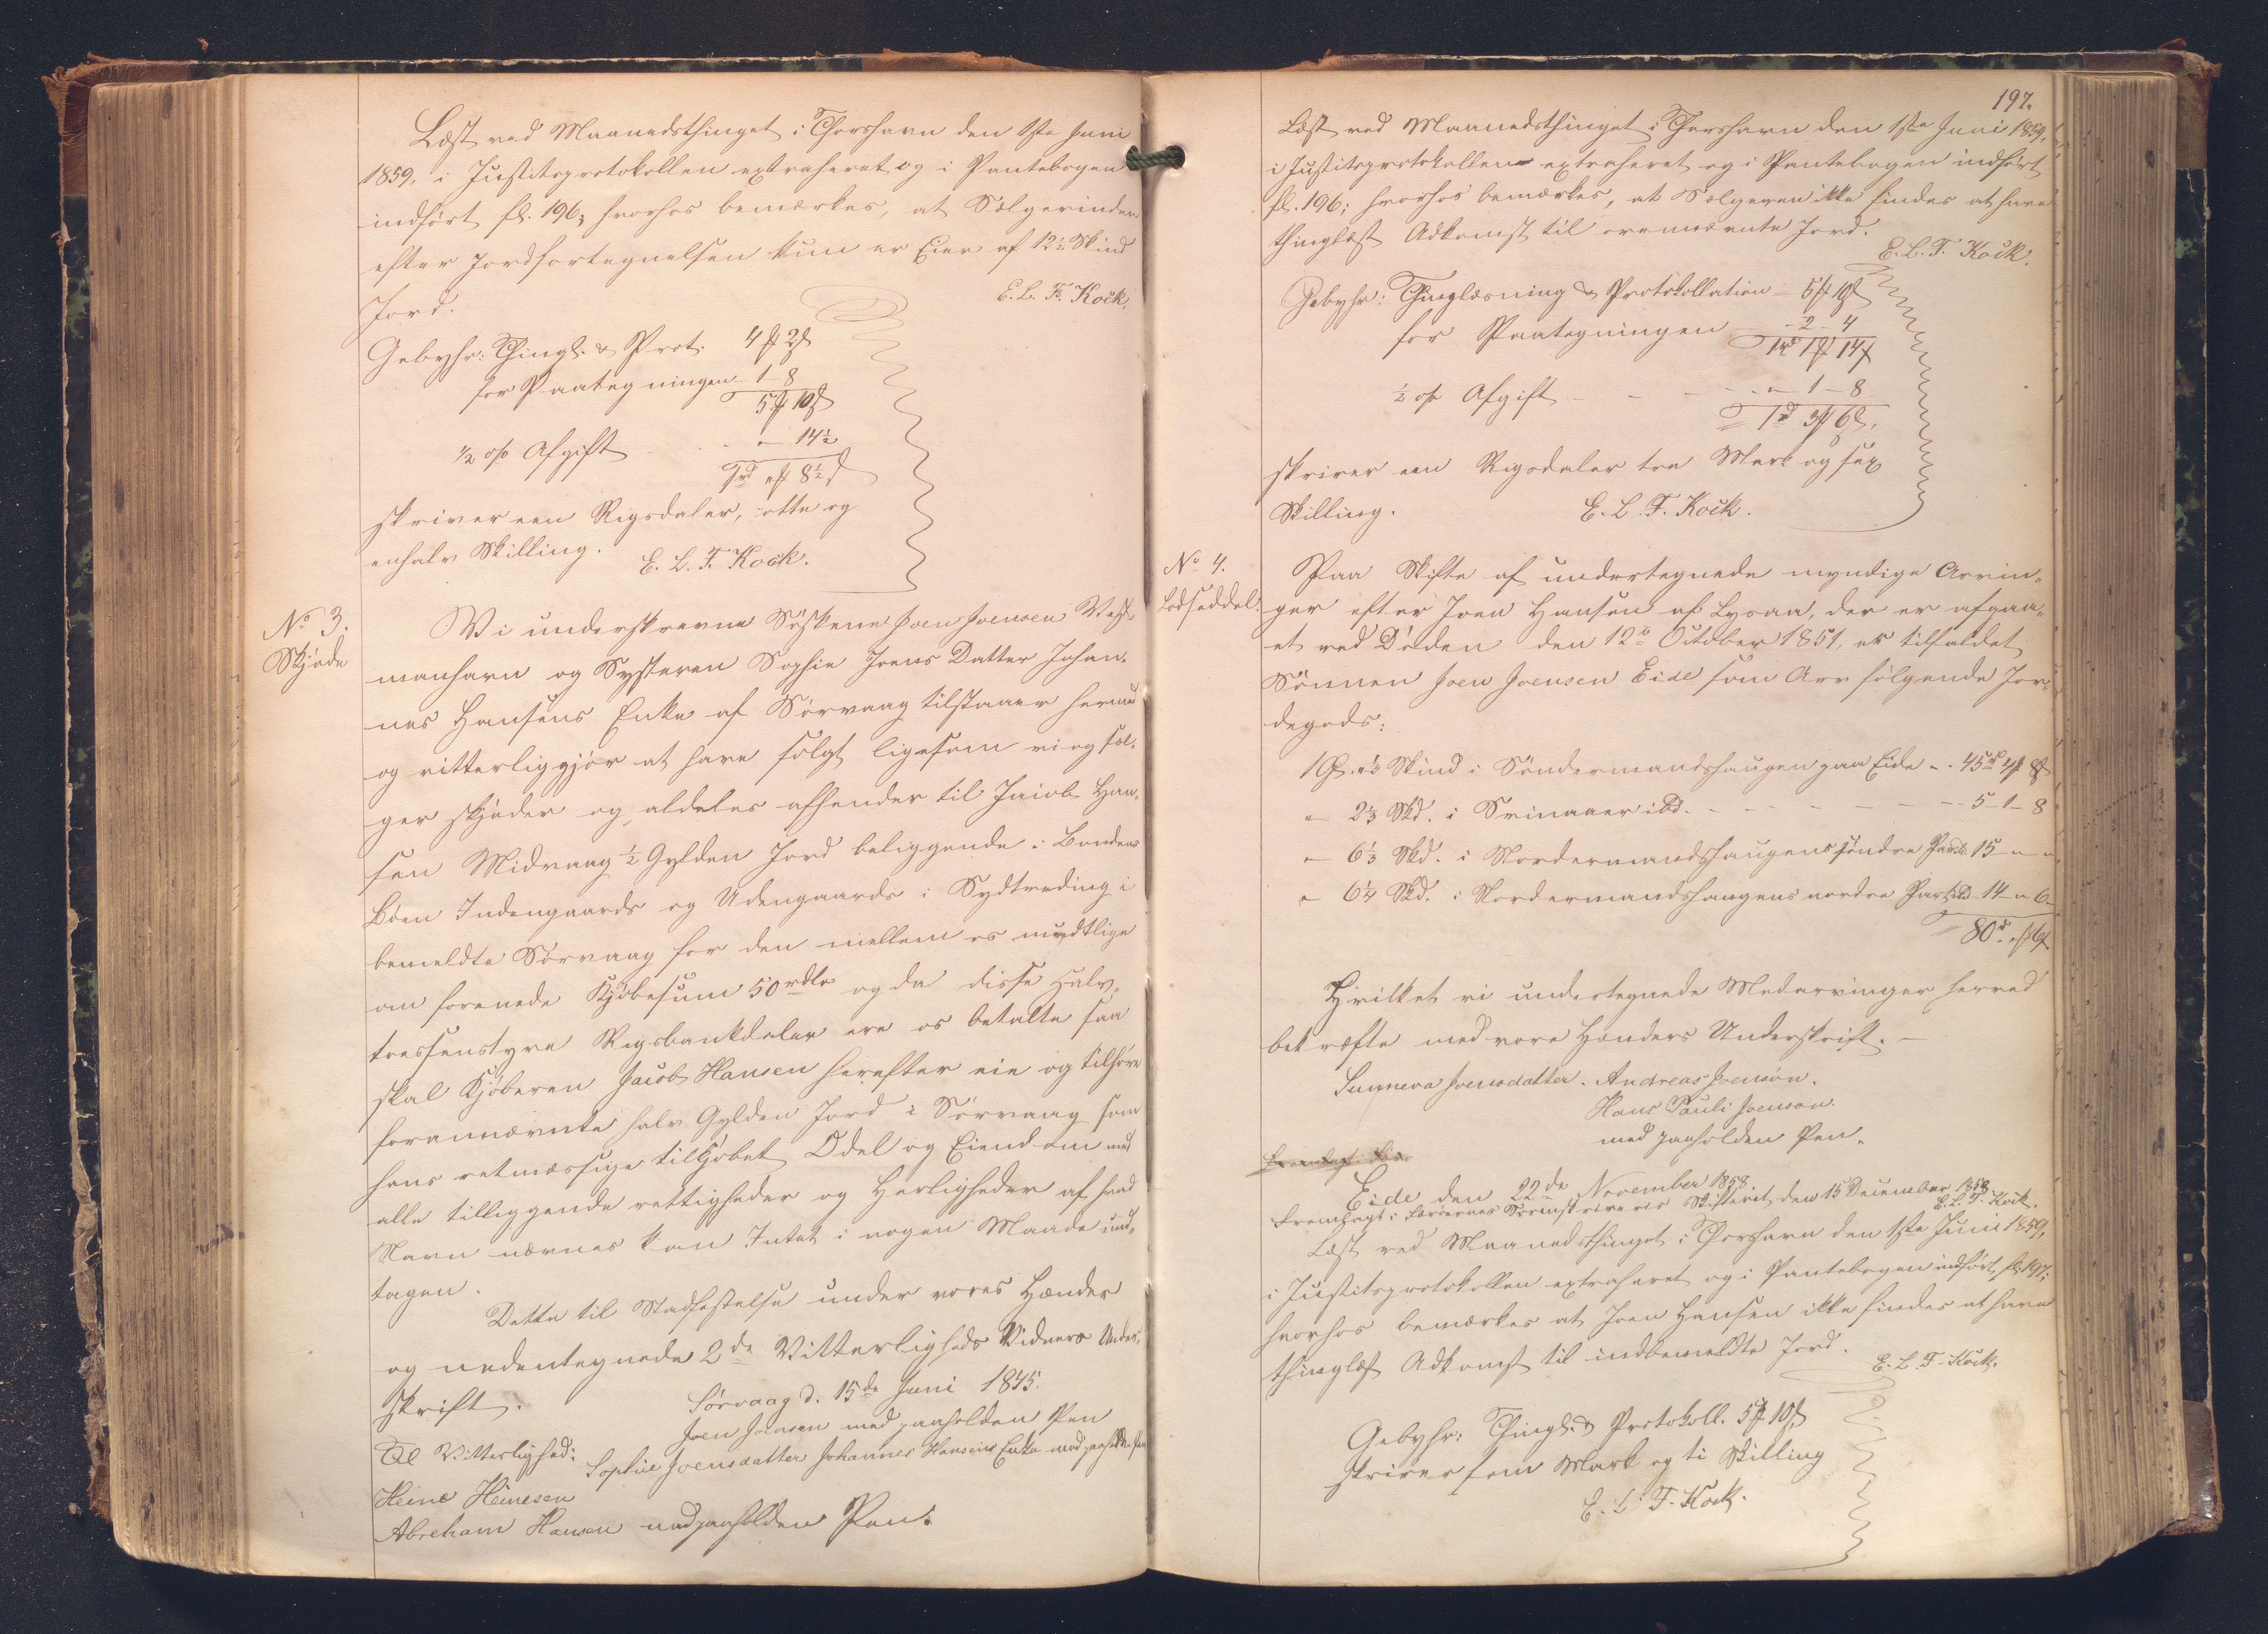 Læst ved Maanedsthinget i Thorshavn den 1ste Juni
1859, i Justitsprotokollen extraheret og i Pantebogen
indført fl. 196, hvorhos bemærkes, at Sælgerinden
efter Jordfortegnelsen kun er Eier af 12½ Skind
Jord.
E. L. F. Kock.
Gebyhr: Thingl. & Prot. 4 ℳ 2 ß
for Paategningen - 1 - 8
5 ℳ 10 ß
½ o/o Afgift - " - 14½
1 rd " ℳ 8½ ß
skriver een Rigsdaler, otte og
enhalv Skilling.
E. L. F. Kock.
No 3.
Skjøde
Vi underskrevne Søskene Joen Joensen Vest-
manhavn og Systeren Sophie Joens Datter Johan-
nes Hansens Enke af Sørvaag tilstaaer herved
og vitterliggjør at have solgt ligesom vi og sæl-
ger skjøder og aldeles afhender til Jacob Han-
sen Midvaag ½ Gylden Jord beliggende i Bondens
Bøen Indengaards og Udengaards i Sydtreding i
bemeldte Sørvaag for den mellem os mundtlige
om forenede Kjøbesum 50 rdlr og da disse Halv-
tressenstyve Rigsbankdaler ere os betalte saa
skal Kjøberen Jacob Hansen herefter eie og tilhøre
forannævnte halv Gylden Jord i Sørvaag som
hans retmæssige tilkjøbet Odel og Eiendom med
alle tilliggende rettigheder og Herligheder af hvad
Navn nævnes kan Intet i nogen Maade und-
tagen.
Dette til Stadfæstelse under vores Hænder
og nedentegnede 2de Vitterligheds Vidners Under-
skrift.
Sørvaag d. 15de Juni 1845.
Joen Joensen med paaholden Pen
Til Vitterlighed:
Sophie Joensdatter Johannes Hansens Enke med paaholden Pen
Heine Heinesen
Abreham Hansen med paaholden Pen.
197.
Læst ved Maanedsthinget i Thorshavn den 1ste Juni 1859,
i Justitsprotokollen extraheret og i Pantebogen indført
fl. 196; hvorhos bemærkes, at Sælgeren ikke findes at have
thinglæst Adkomst til ovennævnte Jord.
E. L. F. Kock.
Gebyhr: Thinglæsning & Protokollation - 5 ℳ 10 ß
for Paategningen - 2 - 4
1 rd 1 ℳ 14 ß
½ o/o Afgift - - - " - 1 - 8
1 rd 3 ℳ 6 ß.
skriver een Rigsdaler tre Mark og sex
Skilling.
E. L. F. Kock.
No 4.
Lodseddel.
Paa Skifte af undertegnede myndige Arvin-
ger efter Joen Hansen af Lysaa, der er afgaa-
et ved Døden den 12te October 1851, er tilfaldet
Sønnen Joen Joensen Eide som Arv følgende Jor-
degods:
1 G. 1/3 Skind i Søndermandshaugen paa Eide - . 45 rd 4 ℳ 8 ß
" 2⅓ Skd. i Svinaaer ibd. - - - - - - 5 - 1 - 8
" 6⅓ Skd. i Nordermandshaugens søndre Part ibd. 15 - " - "
" 6¼ Skd. i Nordermandshaugens nordre Part ibd. 14 - " 6 -
80 rd " ℳ 6 ß
Hvilket vi undertegnede Medarvinger herved
bekræfte med vore Hænders Underskrift. -
Sunneva Joensdatter. Andreas Joensøn.
Hans Pauli Joenson.
med paaholden Pen.
Eide den 22de November 1858.
Fremlagt i Færøernes Sorenskriver ved Skifteret den 15 December 1858
E. L. F. Kock.
Læst ved Maanedsthinget i Thorshavn den 1ste Juni 1859,
i Justitsprotokollen extraheret og i Pantebogen indført fl. 197;
hvorhos bemærkes at Joen Hansen ikke findes at have
thinglæst Adkomst til indbemeldte Jord.
E. L. F. Kock.
Gebyhr: Thingl. & Protokoll. 5 ℳ 10 ß
skriver fem Mark og ti Skilling
E. L. F. Kock.